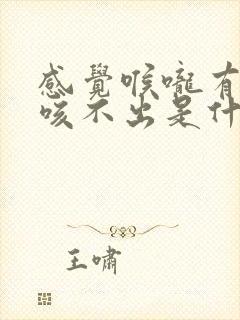 感覺喉嚨有
咳不出是什
王嘯